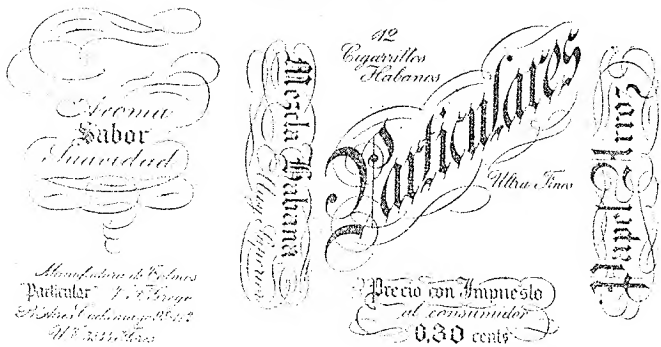 Aroma
Sabor
Suavidad
Manufactura de Tabacos
"Particular"
Mezcla Habana
Muy Superior
12
Cigarrillos
Habanos
Particulares
Ultra Finos
Precio con Impuesto
al consumidor
0,30 cents
Papel Arroz